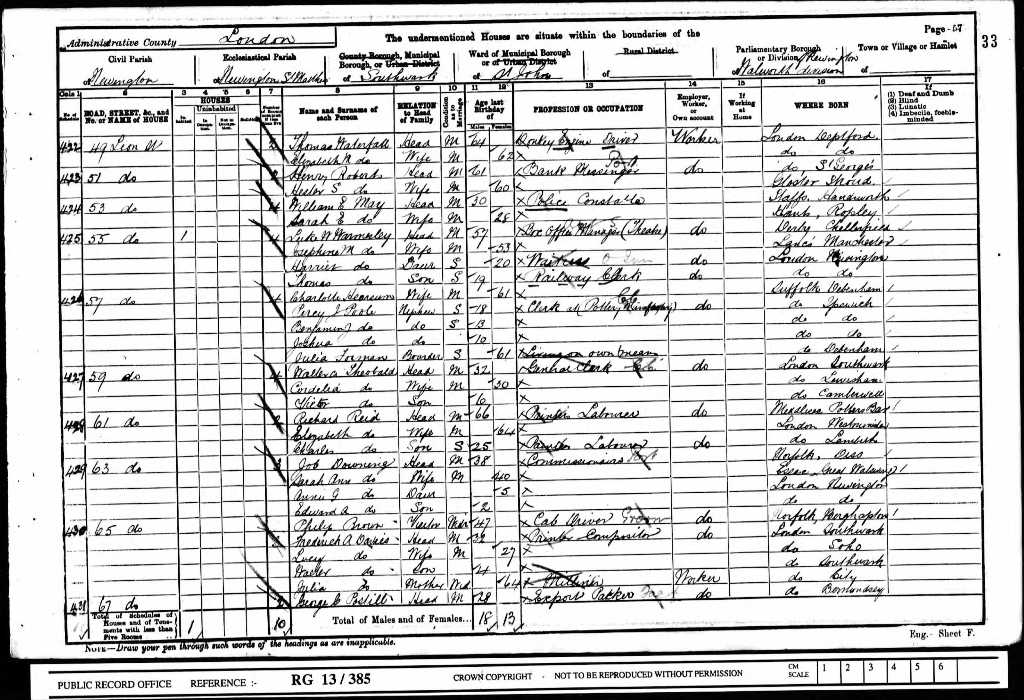 The undermentioned Houses are situate within the boundaries of the
Page- 67
33
Administrative County London
Civil Parish
of Newington
Ecclesiastical Parish
of Newington St
County Borough, Municipal Borough, or Urban District
of Southwark
Ward of Municipal Borough or of Urban District
of St Johns
Rural District
of
Parliamentary Borough or Division Newington
of Walworth Division
Town or Village or Hamlet
of
Cols 1 2 3 4 5 6 7 8 9 10 11 12 13 14 15 16 17
No. of Schedule
ROAD, STREET, &c., and No. or NAME of HOUSE
HOUSES
Inhabited
Uninhabited
In Occupation
Not in Occupation
Building
Name and Surname of each Person
RELATION to Head of Family
Condition as to Marriage
Age last Birthday of
Males Females
PROFESSION OR OCCUPATION
Employer, Worker, or Own account
If Working at Home
WHERE BORN
If
(1) Deaf and Dumb
(2) Blind
(3) Lunatic
(4) Imbecile, feeble-minded
422 49 Lion St Thomas Waterfall Head M 64 Donkey Engine Driver Worker London Deptford
Elizabeth do Wife M 62 do do
423 51 do Henry Roberts Head M 61 Bank Messenger do do St Georges
Hester S do Wife M 60 Gloster Stroud
424 53 do William E May Head M 30 Police Constable Staffs, Handsworth
Sarah E do Wife M 28 Hants, Ropley
425 55 do 1 Luke W Head M 57 Box Office Manager (Theatre) do Derby
Josephine M do Wife M 53 Lancs Manchester
Harriet do Daur S 20 Waitress do London Newington
Thomas do Son S 19 Railway Clerk do do do
426 57 do Charlotte Wife M 61 Suffolk Debenham
Percy J Poole Nephew S 18 Clerk at (Pottery) do do Ipswich
Benjamin J do do S 13 do do
Joshua do do 10 do do
Julia Boarder S 61 Living on own means do Debenham
427 59 do Walter A Theobald Head M 32 General Clerk do London Southwark
Cordelia do Wife M 30 do Lewisham
Victor do Son 6 do Camberwell
428 61 do Richard Reid Head M 66 Printers Labourer do Middlesex Potters Bar
Elizabeth do Wife M 64 London Westminster
Charles do Son S 25 Printers Labourer do do Lambeth
429 63 do Job Downing Head M 38 Commissionaire Norfolk, Diss
Sarah Ann do Wife M 40 Essex, Great
Annie J do Daur 5 London Newington
Edward A do Son 2 do do
430 65 do Philip Brown 47 Cab Driver Groom do Norfolk,
Frederick A Davies Head M 32 Printer Compositor do London Southwark
Lucy do Wife M 27 do Soho
Walter do Son 4 do Southwark
Julia do Mother Wid 64 Worker do City
431 67 do George C Head M 28 Export Packer do do Bermondsey
Total of Schedules of Houses and of Tenements with less than Five Rooms
1
10
Total of Males and of Females...
18 13
NOTE—Draw your pen through such words of the headings as are inapplicable.
Eng.- Sheet F.
PUBLIC RECORD OFFICE REFERENCE :- RG 13/385 CROWN COPYRIGHT - NOT TO BE REPRODUCED WITHOUT PERMISSION
CM SCALE 1 2 3 4 5 6